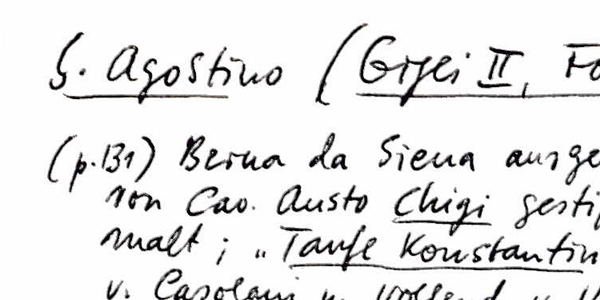 S. Agostino (Gigli II, Fo
(p.131) Berna da Siena ausge
von Cav. Austo Chigi gestif
malt; „Taufe Konstantin
v. Casolani u. vollend. v. V